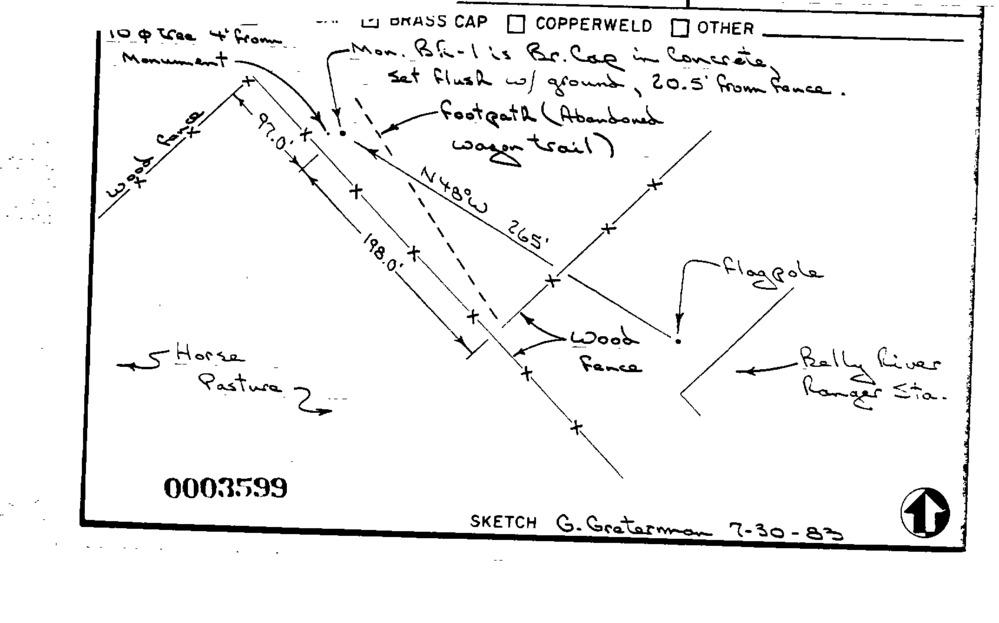 BRASS CAP COPPERWELD OTHER
10 φ tree 4' from
Monument
Mon. BR-1 is Br. Cap in Concrete,
set flush w/ ground, 20.5' from fence.
footpath (Abandoned
wagon trail)
wood fence
97.0'
198.0'
N48°W 265'
flagpole
Wood
fence
Horse
Pasture
Belly River
Ranger Sta.
0003599
SKETCH G. Graterman 7-30-83